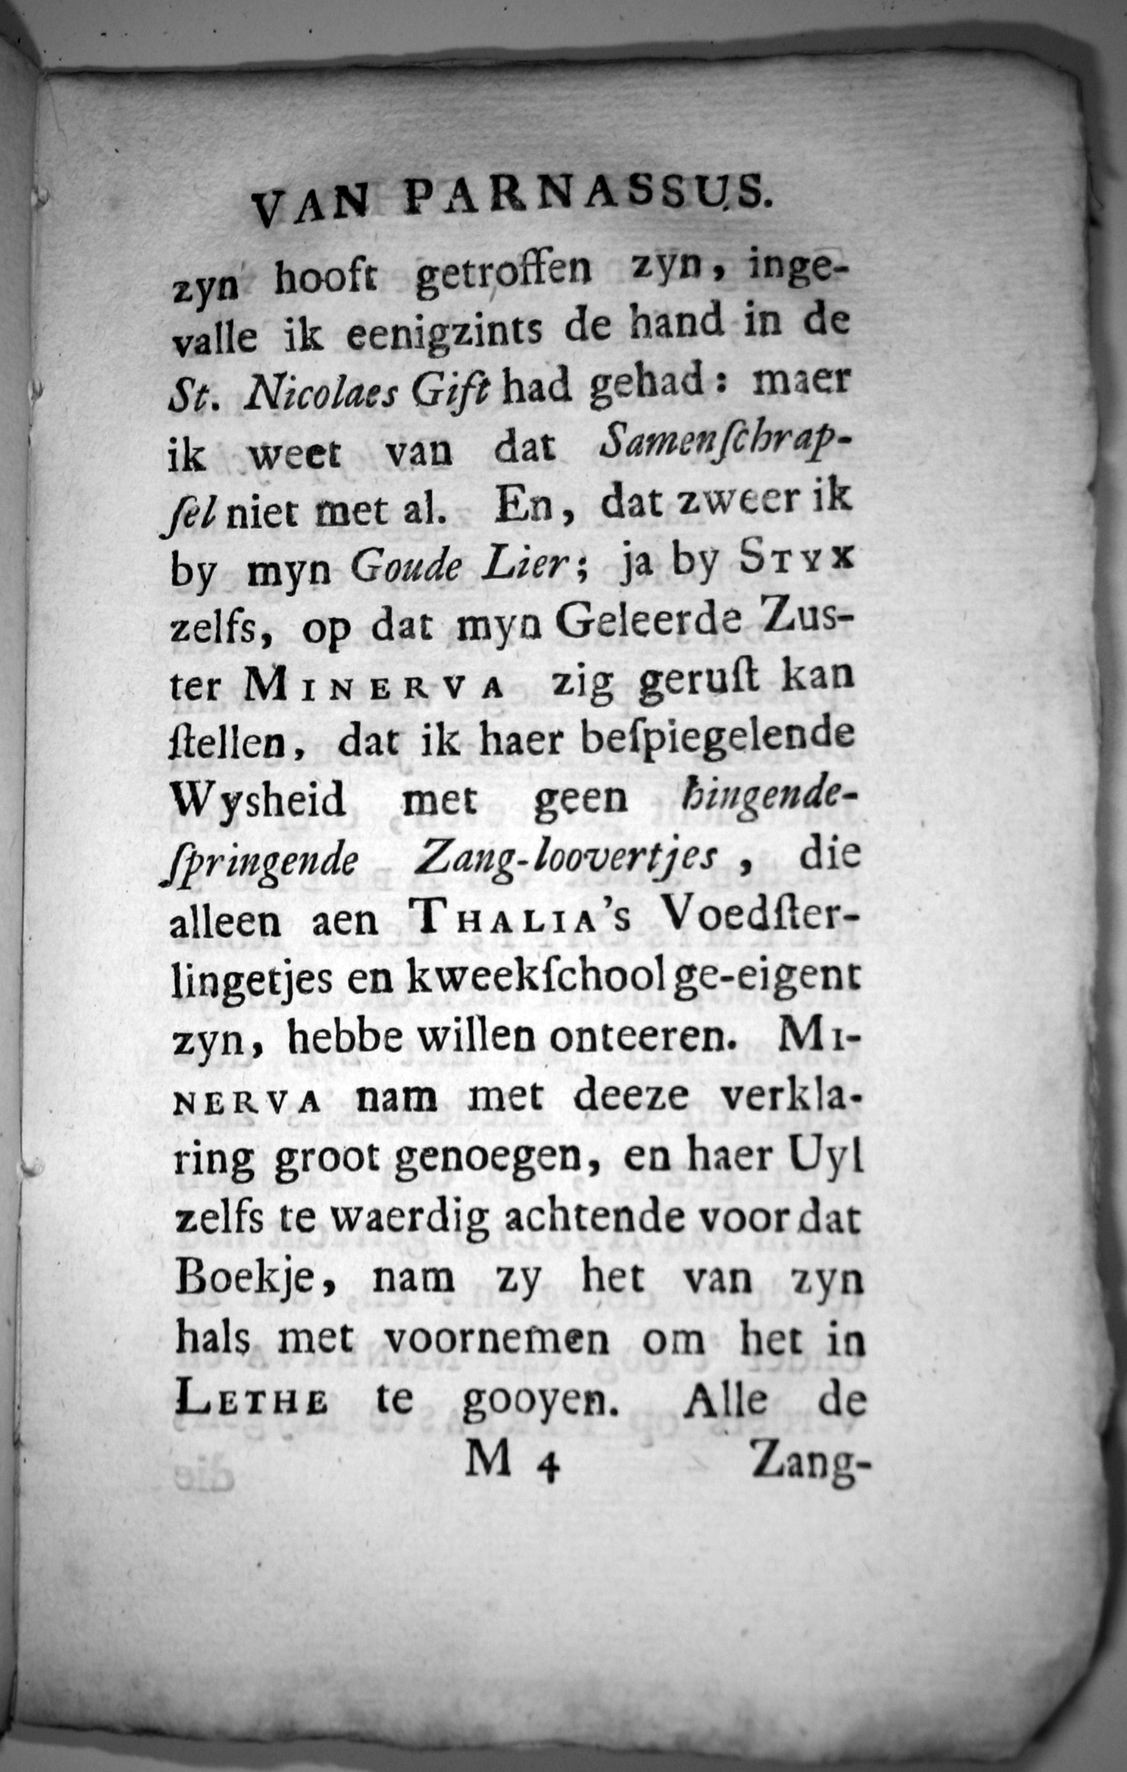 VAN PARNASSUS.
zyn hooft getroffen zyn, inge-
valle ik eenigzints de hand in de
St. Nicolaes Gift had gehad: maer
ik weet van dat Samenſchrap-
ſel niet met al. En, dat zweer ik
by myn Goude Lier; ja by STYX
zelfs, op dat myn Geleerde Zus-
ter MINERVA zig geruſt kan
ſtellen, dat ik haer beſpiegelende
Wysheid met geen hingende-
ſpringende Zang-loovertjes, die
alleen aen THALIA's Voedſter-
lingetjes en kweekſchool ge-eigent
zyn, hebbe willen onteeren. MI-
NERVA nam met deeze verkla-
ring groot genoegen, en haer Uyl
zelfs te waerdig achtende voor dat
Boekje, nam zy het van zyn
hals met voornemen om het in
LETHE te gooyen. Alle de
M 4 Zang-